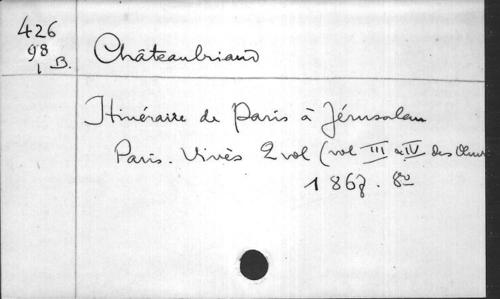 426
98
1 B.
Châteaubriand
Itinéraire de Paris à Jérusalem
Paris. Vivès 2 vol (vol III & IV des Œuvr
1867. 8º